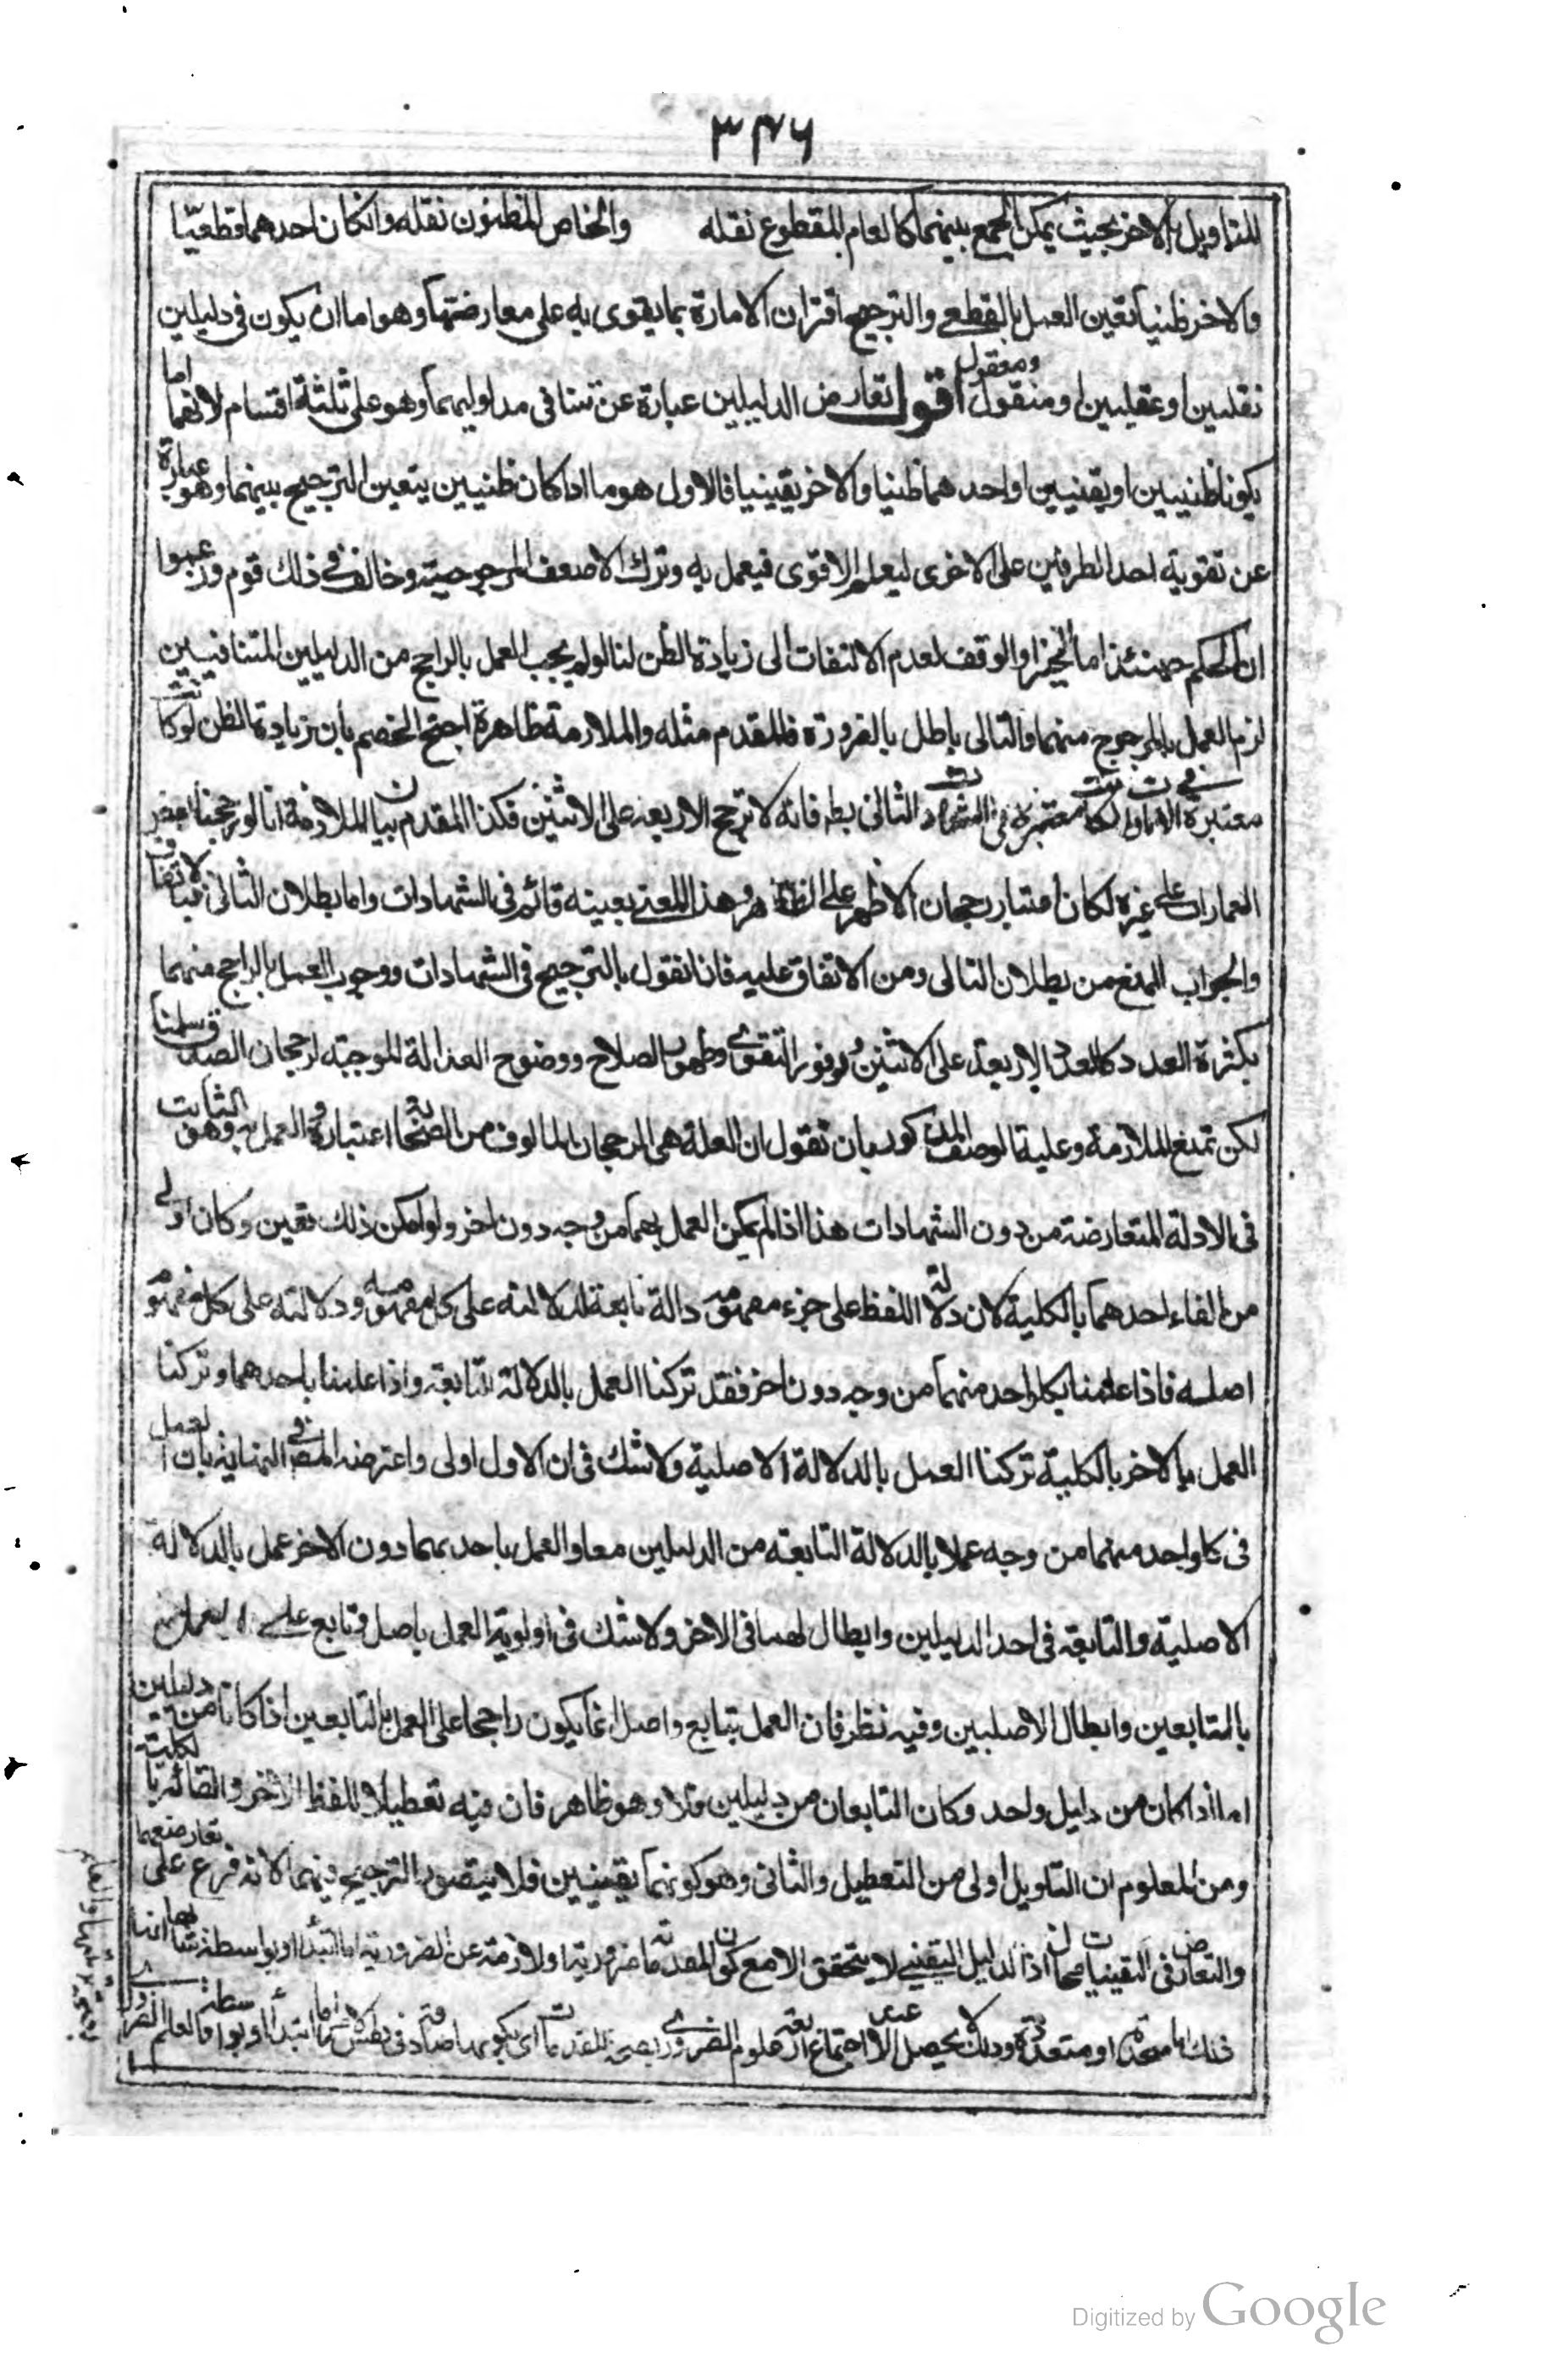 ٣٤٦
للتاويل بالاخر بحيث يمكن الجمع بينهما كالعام المقطوع نقله والخاص المظنون نقله وانكان احدهما قطعيّا
والاخر ظنيا تعين العمل بالقطعي والترجيح اقتران الامارة بما يقوى به على معارضتها وهو اما ان يكون في دليلين
نقليين او عقليين او منقول ومعقول اقول تعارض الدليلين عبارة عن تنافى مدلوليهما وهو على ثلثة اقسام لانهما اما
يكونا ظنيين او يقنيين او احدهما ظنيا والاخر يقينيا فالاول هو ما اذا كان ظنيين يتعين الترجيح بينهما وهو عبارة
عن تقوية احد الطرفين على الاخرى ليعلم الاقوى فيعمل به وترك الاضعف المرجوحيته وخالف في ذلك قوم وزعموا
ان الحكم حينئذ اما التخير او الوقف لعدم الالتفات الى زيادة الظن لنا لو لم يجب العمل بالراجح من الدليلين المتنافيين
لزم العمل بالمرجوح منهما والتالى باطل بالضرورة فالمقدم مثله والملازمة ظاهرة احتج الخصم بان زيادة الظن لو كانت
معتبرة في الامارات لكانت معتبرة في الشهادات التالى بط فانه لا ترجح الاربعة على الاثنين فكذا المقدم بيان الملازمة انا لو رجحنا بعض
العمارات على غيره لكان اعتبار رجحان الاظهر على الظاهر وهذا المعنى بعينه قائم في الشهادات واما بطلان التالى فبالاتفاق
والجواب المنع من بطلان التالى ومن الاتفاق عليه فانا نقول بالترجيح في الشهادات ووجوب العمل بالراجح منهما
بكثرة العدد كالعدل الاربعة على الاثنين وبوفور التقوى وظهور الصلاح ووضوح العدالة الموجبته لرجحان الصدق سلمنا
لكن تمنع الملازمة وعلية الوصف المذكور بان نقول ان العلة هى الرجحان المالوف من الصحابة اعتباره والعمل به وهو الثابت
في الادلة المتعارضة من دون الشهادات هذا اذا لم يمكن العمل بهما من وجه دون اخر ولو امكن ذلك تعين وكان اولى
من الغاء احدهما بالكلية لان دلالة اللفظ على جزء مفهومه دالة تابعة لدلالته على كل مفهومه ودلالته على كل مفهومه
اصلية فاذا عملنا بكل واحد منهما من وجه دون اخر فقد تركنا العمل بالدلالة التابعة واذا عملنا باحدهما وتركنا
العمل بالاخر بالكلية تركنا العمل بالدلالة الاصلية ولا شك في ان الاول اولى واعترضه المصنف في النهاية بان العمل
في كل واحد منهما من وجه عملا بالدلالة التابعة من الدليلين معا والعمل باحدهما دون الاخر عمل بالدلالة
الاصلية والتابعة في احد الدليلين وابطال لهما في الاخر ولا شك في اولوية العمل باصل وتابع على العمل
بالتابعين وابطال الاصليين وفيه نظر فان العمل بتابع واصل انما يكون راجحا على العمل بالتابعين اذا كانا من دليلين
اما اذا كان من دليل واحد وكان التابعان من دليلين فلا وهو ظاهر فان فيه تعطيلا للفظ الاخر والقائه بالكلية
ومن المعلوم ان التاويل اولى من التعطيل والثانى وهو كونهما يقينيين فلا يتصور الترجيح فيهما لانه فرع على تعارضهما
والتعارض في اليقينيات محال اذ الدليل اليقيني لا يتحقق الا مع كون المقدمة ضرورية او لازمة عن الضرورية اما ابتداء او بواسطة